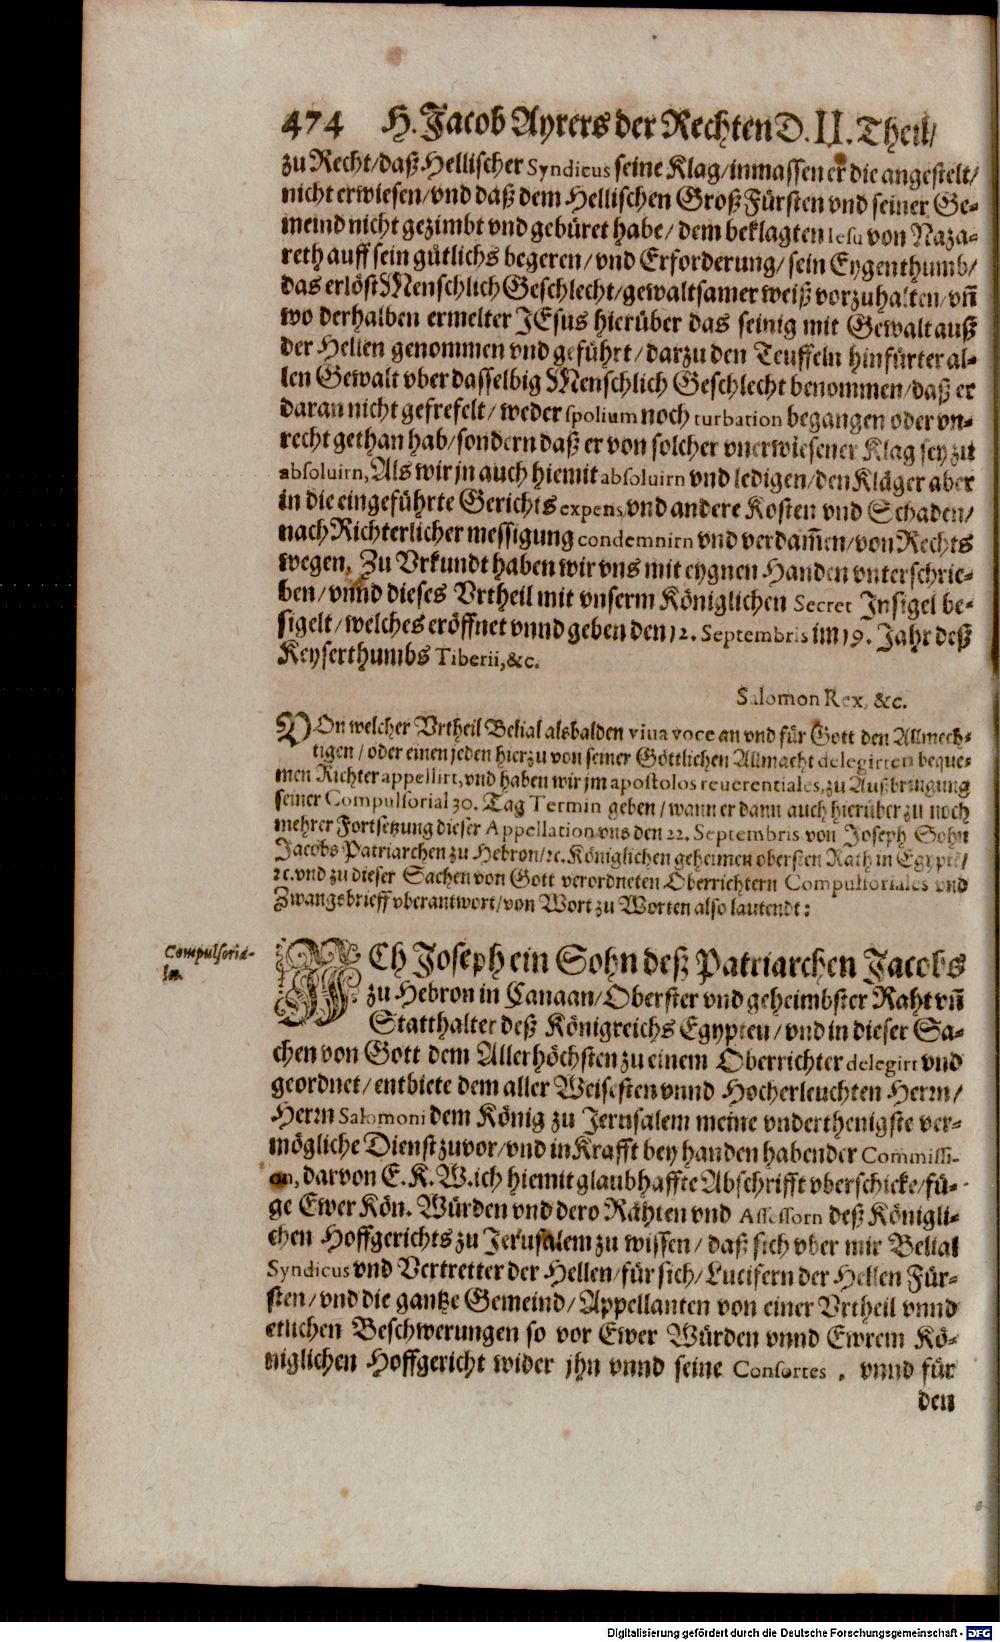 474 H. Jacob Ayrers der Rechten D. II. Theil/
zu Recht/daß Hellischer Syndicus seine Klag/inmassen er die angestelt/
nicht erwiesen/vnd daß dem Hellischen Groß Fürsten vnd seiner Ge-
meind nicht gezimbt vnd gebüret habe/ dem beklagten Iesu von Naza-
reth auff sein gütlichs begeren/vnd Erforderung/ sein Eygenthumb/
das erlöst Menschlich Geschlecht/gewaltsamer weiß vorzuhalten/vñ
wo derhalben ermelter JEsus hierüber das seinig mit Gewalt auß
der Hellen genommen vnd geführt/ darzu den Teuffeln hinfürter al-
len Gewalt vber dasselbig Menschlich Geschlecht benommen/daß er
daran nicht gefrefelt/ weder spolium noch turbation begangen oder vn-
recht gethan hab/sondern daß er von solcher vnerwiesener Klag sey zu
absoluirn, Als wir jn auch hiemit absoluirn vnd ledigen/den Kläger aber
in die eingeführte Gerichts expens vnd andere Kosten vnd Schaden/
nach Richterlicher messigung condemnirn vnd verdam̃en/von Rechts
wegen. Zu Vrkundt haben wir vns mit eygnen Handen vnterschrie-
ben/vnnd dieses Vrtheil mit vnserm Königlichen Secret Insigel be-
sigelt/welches eröffnet vnnd geben den 12. Septembris im 19. Jahr deß
Keyserthumbs Tiberii, &c.
Salomon Rex, &c.
VOn welcher Vrtheil Belial alsbalden viua voce an vnd für Gott den Allmech-
tigen/ oder einen jeden hierzu von seiner Göttlichen Allmacht delegirten beque-
men Richter appellirt, vnd haben wir jm apostolos reuerentiales, zu Außbringung
seiner Compulsorial 30. Tag Termin geben/wann er dann auch hierüber zu noch
mehrer Fortsetzung dieser Appellation vns den 22. Septembris von Joseph Sohn
Jacobs Patriarchen zu Hebron/ꝛc. Königlichen geheimen obersten Rath in Egypte/
ꝛc. vnd zu dieser Sachen von Gott verordneten Oberrichtern Compulsoriales vnd
Zwangsbrieff vberantwort/von Wort zu Worten also lautendt:
Compulsoria-
les.
ICH Joseph ein Sohn deß Patriarchen Jacobs
zu Hebron in Canaan/Oberster vnd geheimbster Raht vñ
Statthalter deß Königreichs Egypten/vnd in dieser Sa-
chen von Gott dem Allerhöchsten zu einem Oberrichter delegirt vnd
geordnet/entbiete dem aller Weisesten vnnd Hocherleuchten Herrn/
Herrn Salomoni dem König zu Jerusalem meine vnderthenigste ver-
mögliche Dienst zuvor/vnd in Krafft bey handen habender Commissi-
on, darvon E. K. W. ich hiemit glaubhaffte Abschrifft vberschicke/fü-
ge Ewer Kön. Würden vnd dero Rähten vnd Assessorn deß Königli-
chen Hoffgerichts zu Jerusalem zu wissen/ daß sich vber mir Belial
Syndicus vnd Vertretter der Hellen/für sich/Lucifern der Hellen Für-
sten/vnd die gantze Gemeind/Appellanten von einer Vrtheil vnnd
etlichen Beschwerungen so vor Ewer Würden vnnd Ewrem Kö-
niglichen Hoffgericht wider jhn vnnd seine Consortes, vnnd für
den
Digitalisierung gefördert durch die Deutsche Forschungsgemeinschaft - DFG